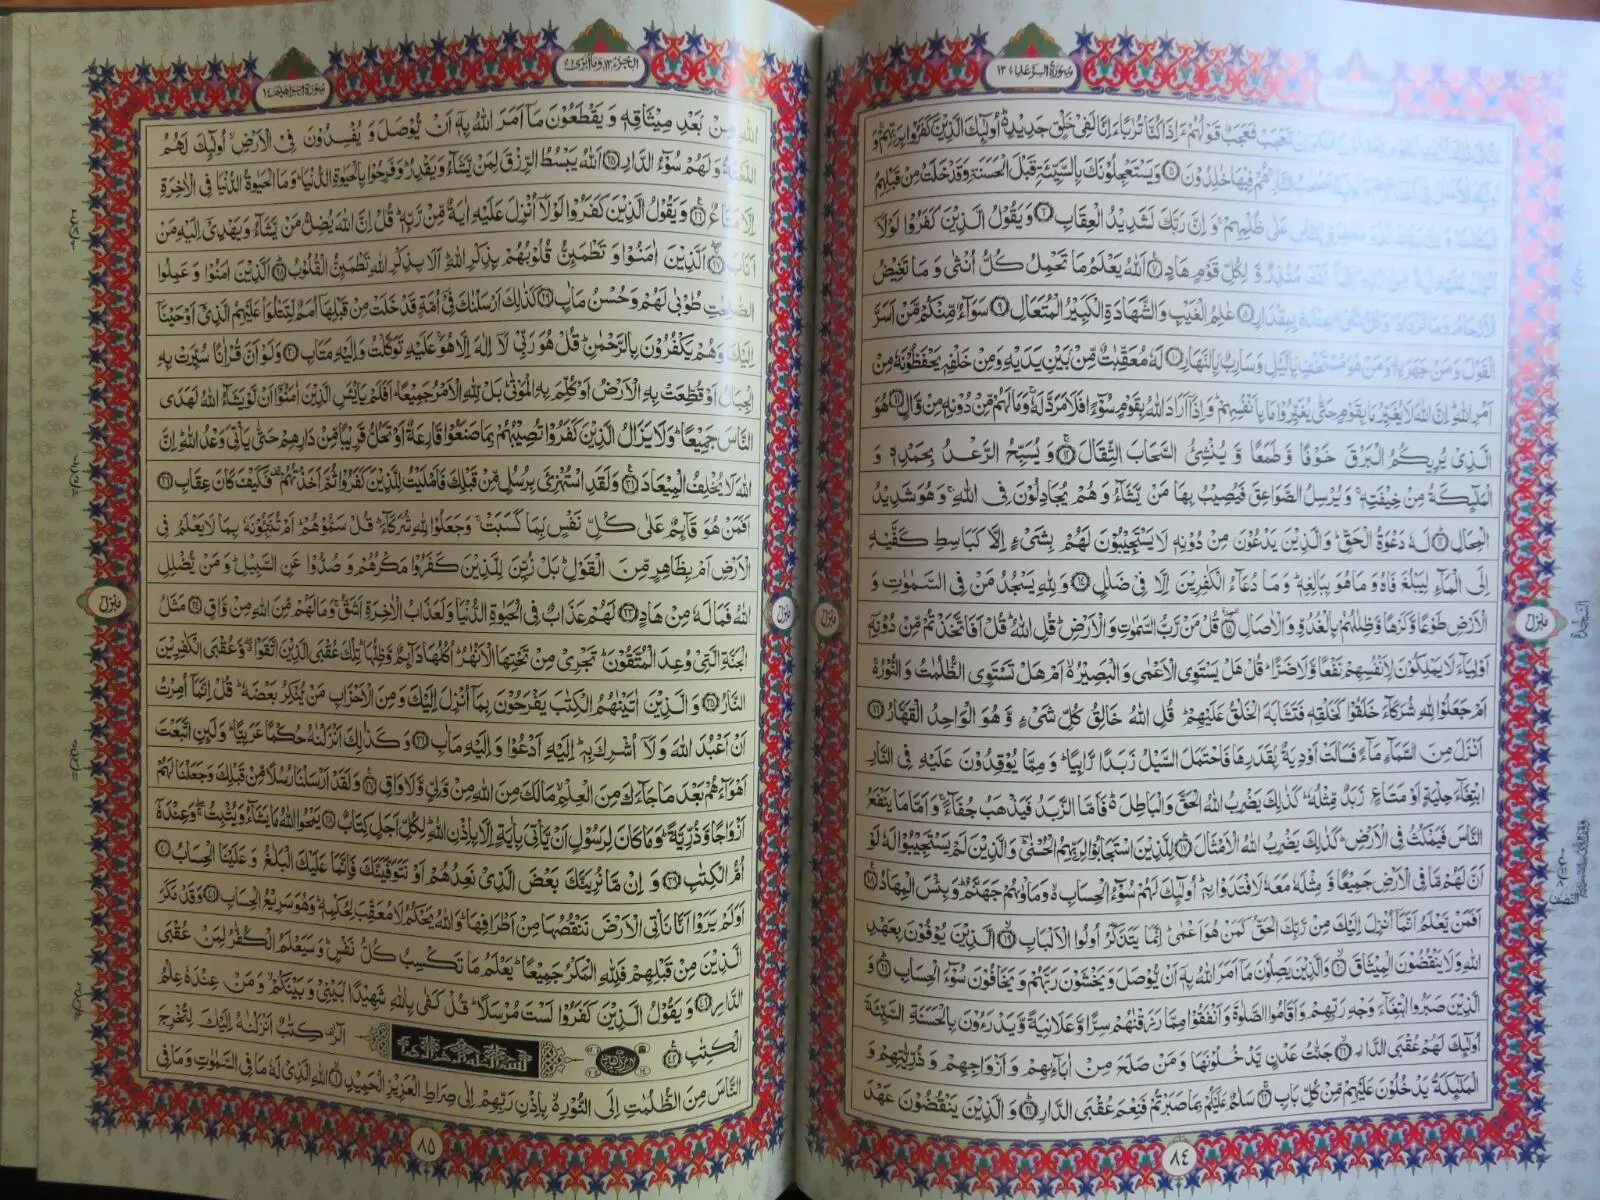 سُوْرَةُ الرَّعْد ١٣
تَعْجَبْ فَعَجَبٌ قَوْلُهُمْ ءَاِذَا كُنَّا تُرٰبًا ءَاِنَّا لَفِىْ خَلْقٍ جَدِيْدٍ اُولٰٓئِكَ الَّذِيْنَ كَفَرُوْا بِرَبِّهِمْ وَ
هُمْ فِيْهَا خٰلِدُوْنَ ٥ وَيَسْتَعْجِلُوْنَكَ بِالسَّيِّئَةِ قَبْلَ الْحَسَنَةِ وَقَدْ خَلَتْ مِنْ قَبْلِهِمُ
لِلنَّاسِ عَلٰى ظُلْمِهِمْ وَ اِنَّ رَبَّكَ لَشَدِيْدُ الْعِقَابِ ٦ وَيَقُوْلُ الَّذِيْنَ كَفَرُوْا لَوْلَآ
اُنْزِلَ عَلَيْهِ اٰيَةٌ مِّنْ رَّبِّهٖ اِنَّمَآ اَنْتَ مُنْذِرٌ وَّ لِكُلِّ قَوْمٍ هَادٍ ٧ اَللّٰهُ يَعْلَمُ مَا تَحْمِلُ كُلُّ اُنْثٰى وَ مَا تَغِيْضُ
الْاَرْحَامُ وَمَا تَزْدَادُ وَكُلُّ شَىْءٍ عِنْدَهٗ بِمِقْدَارٍ ٨ عٰلِمُ الْغَيْبِ وَالشَّهَادَةِ الْكَبِيْرُ الْمُتَعَالِ ٩ سَوَآءٌ مِّنْكُمْ مَّنْ اَسَرَّ
الْقَوْلَ وَمَنْ جَهَرَ بِهٖ وَمَنْ هُوَ مُسْتَخْفٍۢ بِالَّيْلِ وَسَارِبٌۢ بِالنَّهَارِ ١٠ لَهٗ مُعَقِّبٰتٌ مِّنْۢ بَيْنِ يَدَيْهِ وَمِنْ خَلْفِهٖ يَحْفَظُوْنَهٗ مِنْ
اَمْرِ اللّٰهِ اِنَّ اللّٰهَ لَا يُغَيِّرُ مَا بِقَوْمٍ حَتّٰى يُغَيِّرُوْا مَا بِاَنْفُسِهِمْ وَ اِذَآ اَرَادَ اللّٰهُ بِقَوْمٍ سُوْٓءًا فَلَا مَرَدَّ لَهٗ وَمَا لَهُمْ مِّنْ دُوْنِهٖ مِنْ وَّالٍ ١١ هُوَ
الَّذِىْ يُرِيْكُمُ الْبَرْقَ خَوْفًا وَّ طَمَعًا وَّ يُنْشِئُ السَّحَابَ الثِّقَالَ ١٢ وَ يُسَبِّحُ الرَّعْدُ بِحَمْدِهٖ وَ
الْمَلٰٓئِكَةُ مِنْ خِيْفَتِهٖ وَ يُرْسِلُ الصَّوَاعِقَ فَيُصِيْبُ بِهَا مَنْ يَّشَآءُ وَ هُمْ يُجَادِلُوْنَ فِى اللّٰهِ وَهُوَ شَدِيْدُ
الْمِحَالِ ١٣ لَهٗ دَعْوَةُ الْحَقِّ وَالَّذِيْنَ يَدْعُوْنَ مِنْ دُوْنِهٖ لَا يَسْتَجِيْبُوْنَ لَهُمْ بِشَىْءٍ اِلَّا كَبَاسِطِ كَفَّيْهِ
اِلَى الْمَآءِ لِيَبْلُغَ فَاهُ وَمَا هُوَ بِبَالِغِهٖ وَ مَا دُعَآءُ الْكٰفِرِيْنَ اِلَّا فِىْ ضَلٰلٍ ١٤ وَلِلّٰهِ يَسْجُدُ مَنْ فِى السَّمٰوٰتِ وَ
الْاَرْضِ طَوْعًا وَّكَرْهًا وَّظِلٰلُهُمْ بِالْغُدُوِّ وَالْاٰصَالِ ١٥ قُلْ مَنْ رَّبُّ السَّمٰوٰتِ وَالْاَرْضِ قُلِ اللّٰهُ قُلْ اَفَاتَّخَذْتُمْ مِّنْ دُوْنِهٖٓ
اَوْلِيَآءَ لَا يَمْلِكُوْنَ لِاَنْفُسِهِمْ نَفْعًا وَّلَا ضَرًّا قُلْ هَلْ يَسْتَوِى الْاَعْمٰى وَالْبَصِيْرُ اَمْ هَلْ تَسْتَوِى الظُّلُمٰتُ وَ النُّوْرُ
اَمْ جَعَلُوْا لِلّٰهِ شُرَكَآءَ خَلَقُوْا كَخَلْقِهٖ فَتَشَابَهَ الْخَلْقُ عَلَيْهِمْ قُلِ اللّٰهُ خَالِقُ كُلِّ شَىْءٍ وَّ هُوَ الْوَاحِدُ الْقَهَّارُ ١٦
اَنْزَلَ مِنَ السَّمَآءِ مَآءً فَسَالَتْ اَوْدِيَةٌۢ بِقَدَرِهَا فَاحْتَمَلَ السَّيْلُ زَبَدًا رَّابِيًا وَ مِمَّا يُوْقِدُوْنَ عَلَيْهِ فِى النَّارِ
ابْتِغَآءَ حِلْيَةٍ اَوْ مَتَاعٍ زَبَدٌ مِّثْلُهٗ كَذٰلِكَ يَضْرِبُ اللّٰهُ الْحَقَّ وَالْبَاطِلَ فَاَمَّا الزَّبَدُ فَيَذْهَبُ جُفَآءً وَ اَمَّا مَا يَنْفَعُ
النَّاسَ فَيَمْكُثُ فِى الْاَرْضِ كَذٰلِكَ يَضْرِبُ اللّٰهُ الْاَمْثَالَ ١٧ لِلَّذِيْنَ اسْتَجَابُوْا لِرَبِّهِمُ الْحُسْنٰى وَالَّذِيْنَ لَمْ يَسْتَجِيْبُوْا لَهٗ لَوْ
اَنَّ لَهُمْ مَّا فِى الْاَرْضِ جَمِيْعًا وَّ مِثْلَهٗ مَعَهٗ لَافْتَدَوْا بِهٖ اُولٰٓئِكَ لَهُمْ سُوْٓءُ الْحِسَابِ وَمَاْوٰىهُمْ جَهَنَّمُ وَ بِئْسَ الْمِهَادُ ١٨
اَفَمَنْ يَّعْلَمُ اَنَّمَآ اُنْزِلَ اِلَيْكَ مِنْ رَّبِّكَ الْحَقُّ كَمَنْ هُوَ اَعْمٰى اِنَّمَا يَتَذَكَّرُ اُولُوا الْاَلْبَابِ ١٩ الَّذِيْنَ يُوْفُوْنَ بِعَهْدِ
اللّٰهِ وَلَا يَنْقُضُوْنَ الْمِيْثَاقَ ٢٠ وَالَّذِيْنَ يَصِلُوْنَ مَآ اَمَرَ اللّٰهُ بِهٖٓ اَنْ يُّوْصَلَ وَ يَخْشَوْنَ رَبَّهُمْ وَ يَخَافُوْنَ سُوْٓءَ الْحِسَابِ ٢١ وَ
الَّذِيْنَ صَبَرُوا ابْتِغَآءَ وَجْهِ رَبِّهِمْ وَ اَقَامُوا الصَّلٰوةَ وَ اَنْفَقُوْا مِمَّا رَزَقْنٰهُمْ سِرًّا وَّ عَلَانِيَةً وَّ يَدْرَءُوْنَ بِالْحَسَنَةِ السَّيِّئَةَ
اُولٰٓئِكَ لَهُمْ عُقْبَى الدَّارِ ٢٢ جَنّٰتُ عَدْنٍ يَّدْخُلُوْنَهَا وَمَنْ صَلَحَ مِنْ اٰبَآئِهِمْ وَ اَزْوَاجِهِمْ وَ ذُرِّيّٰتِهِمْ وَ
الْمَلٰٓئِكَةُ يَدْخُلُوْنَ عَلَيْهِمْ مِّنْ كُلِّ بَابٍ ٢٣ سَلٰمٌ عَلَيْكُمْ بِمَا صَبَرْتُمْ فَنِعْمَ عُقْبَى الدَّارِ ٢٤ وَ الَّذِيْنَ يَنْقُضُوْنَ عَهْدَ
٨٤
السَّجْدَة
مَنْزِل
مَنْزِل
اَلْجُزْءُ ١٣ وَمَا اُبَرِّئُ
سُوْرَةُ اِبْرَاهِيْم ١٤
اللّٰهِ مِنْۢ بَعْدِ مِيْثَاقِهٖ وَ يَقْطَعُوْنَ مَآ اَمَرَ اللّٰهُ بِهٖٓ اَنْ يُّوْصَلَ وَ يُفْسِدُوْنَ فِى الْاَرْضِ اُولٰٓئِكَ لَهُمُ
اللَّعْنَةُ وَ لَهُمْ سُوْٓءُ الدَّارِ ٢٥ اَللّٰهُ يَبْسُطُ الرِّزْقَ لِمَنْ يَّشَآءُ وَيَقْدِرُ وَ فَرِحُوْا بِالْحَيٰوةِ الدُّنْيَا وَمَا الْحَيٰوةُ الدُّنْيَا فِى الْاٰخِرَةِ
اِلَّا مَتَاعٌ ٢٦ وَ يَقُوْلُ الَّذِيْنَ كَفَرُوْا لَوْلَآ اُنْزِلَ عَلَيْهِ اٰيَةٌ مِّنْ رَّبِّهٖ قُلْ اِنَّ اللّٰهَ يُضِلُّ مَنْ يَّشَآءُ وَ يَهْدِىْٓ اِلَيْهِ مَنْ
اَنَابَ ٢٧ اَلَّذِيْنَ اٰمَنُوْا وَ تَطْمَئِنُّ قُلُوْبُهُمْ بِذِكْرِ اللّٰهِ اَلَا بِذِكْرِ اللّٰهِ تَطْمَئِنُّ الْقُلُوْبُ ٢٨ اَلَّذِيْنَ اٰمَنُوْا وَ عَمِلُوا
الصّٰلِحٰتِ طُوْبٰى لَهُمْ وَ حُسْنُ مَاٰبٍ ٢٩ كَذٰلِكَ اَرْسَلْنٰكَ فِىْٓ اُمَّةٍ قَدْ خَلَتْ مِنْ قَبْلِهَآ اُمَمٌ لِّتَتْلُوَا۟ عَلَيْهِمُ الَّذِىْٓ اَوْحَيْنَآ
اِلَيْكَ وَ هُمْ يَكْفُرُوْنَ بِالرَّحْمٰنِ قُلْ هُوَ رَبِّىْ لَآ اِلٰهَ اِلَّا هُوَ عَلَيْهِ تَوَكَّلْتُ وَ اِلَيْهِ مَتَابِ ٣٠ وَ لَوْ اَنَّ قُرْاٰنًا سُيِّرَتْ بِهِ
الْجِبَالُ اَوْ قُطِّعَتْ بِهِ الْاَرْضُ اَوْ كُلِّمَ بِهِ الْمَوْتٰى بَلْ لِّلّٰهِ الْاَمْرُ جَمِيْعًا اَفَلَمْ يَايْـَٔسِ الَّذِيْنَ اٰمَنُوْٓا اَنْ لَّوْ يَشَآءُ اللّٰهُ لَهَدَى
النَّاسَ جَمِيْعًا وَ لَا يَزَالُ الَّذِيْنَ كَفَرُوْا تُصِيْبُهُمْ بِمَا صَنَعُوْا قَارِعَةٌ اَوْ تَحُلُّ قَرِيْبًا مِّنْ دَارِهِمْ حَتّٰى يَاْتِىَ وَعْدُ اللّٰهِ اِنَّ
اللّٰهَ لَا يُخْلِفُ الْمِيْعَادَ ٣١ وَ لَقَدِ اسْتُهْزِئَ بِرُسُلٍ مِّنْ قَبْلِكَ فَاَمْلَيْتُ لِلَّذِيْنَ كَفَرُوْا ثُمَّ اَخَذْتُهُمْ فَكَيْفَ كَانَ عِقَابِ ٣٢
اَفَمَنْ هُوَ قَآئِمٌ عَلٰى كُلِّ نَفْسٍۭ بِمَا كَسَبَتْ وَ جَعَلُوْا لِلّٰهِ شُرَكَآءَ قُلْ سَمُّوْهُمْ اَمْ تُنَبِّـُٔوْنَهٗ بِمَا لَا يَعْلَمُ فِى
الْاَرْضِ اَمْ بِظَاهِرٍ مِّنَ الْقَوْلِ بَلْ زُيِّنَ لِلَّذِيْنَ كَفَرُوْا مَكْرُهُمْ وَ صُدُّوْا عَنِ السَّبِيْلِ وَ مَنْ يُّضْلِلِ
اللّٰهُ فَمَا لَهٗ مِنْ هَادٍ ٣٣ لَهُمْ عَذَابٌ فِى الْحَيٰوةِ الدُّنْيَا وَ لَعَذَابُ الْاٰخِرَةِ اَشَقُّ وَ مَا لَهُمْ مِّنَ اللّٰهِ مِنْ وَّاقٍ ٣٤ مَثَلُ
الْجَنَّةِ الَّتِىْ وُعِدَ الْمُتَّقُوْنَ تَجْرِىْ مِنْ تَحْتِهَا الْاَنْهٰرُ اُكُلُهَا دَآئِمٌ وَّ ظِلُّهَا تِلْكَ عُقْبَى الَّذِيْنَ اتَّقَوْا وَّ عُقْبَى الْكٰفِرِيْنَ
النَّارُ ٣٥ وَ الَّذِيْنَ اٰتَيْنٰهُمُ الْكِتٰبَ يَفْرَحُوْنَ بِمَآ اُنْزِلَ اِلَيْكَ وَ مِنَ الْاَحْزَابِ مَنْ يُّنْكِرُ بَعْضَهٗ قُلْ اِنَّمَآ اُمِرْتُ
اَنْ اَعْبُدَ اللّٰهَ وَ لَآ اُشْرِكَ بِهٖ اِلَيْهِ اَدْعُوْا وَ اِلَيْهِ مَاٰبِ ٣٦ وَ كَذٰلِكَ اَنْزَلْنٰهُ حُكْمًا عَرَبِيًّا وَ لَئِنِ اتَّبَعْتَ
اَهْوَآءَهُمْ بَعْدَ مَا جَآءَكَ مِنَ الْعِلْمِ مَا لَكَ مِنَ اللّٰهِ مِنْ وَّلِىٍّ وَّ لَا وَاقٍ ٣٧ وَ لَقَدْ اَرْسَلْنَا رُسُلًا مِّنْ قَبْلِكَ وَ جَعَلْنَا لَهُمْ
اَزْوَاجًا وَّ ذُرِّيَّةً وَ مَا كَانَ لِرَسُوْلٍ اَنْ يَّاْتِىَ بِاٰيَةٍ اِلَّا بِاِذْنِ اللّٰهِ لِكُلِّ اَجَلٍ كِتَابٌ ٣٨ يَمْحُوا اللّٰهُ مَا يَشَآءُ وَ يُثْبِتُ وَ عِنْدَهٗٓ
اُمُّ الْكِتٰبِ ٣٩ وَ اِنْ مَّا نُرِيَنَّكَ بَعْضَ الَّذِىْ نَعِدُهُمْ اَوْ نَتَوَفَّيَنَّكَ فَاِنَّمَا عَلَيْكَ الْبَلٰغُ وَ عَلَيْنَا الْحِسَابُ ٤٠
اَوَ لَمْ يَرَوْا اَنَّا نَاْتِى الْاَرْضَ نَنْقُصُهَا مِنْ اَطْرَافِهَا وَ اللّٰهُ يَحْكُمُ لَا مُعَقِّبَ لِحُكْمِهٖ وَ هُوَ سَرِيْعُ الْحِسَابِ ٤١ وَ قَدْ مَكَرَ
الَّذِيْنَ مِنْ قَبْلِهِمْ فَلِلّٰهِ الْمَكْرُ جَمِيْعًا يَعْلَمُ مَا تَكْسِبُ كُلُّ نَفْسٍ وَ سَيَعْلَمُ الْكُفّٰرُ لِمَنْ عُقْبَى
الدَّارِ ٤٢ وَ يَقُوْلُ الَّذِيْنَ كَفَرُوْا لَسْتَ مُرْسَلًا قُلْ كَفٰى بِاللّٰهِ شَهِيْدًاۢ بَيْنِىْ وَ بَيْنَكُمْ وَ مَنْ عِنْدَهٗ عِلْمُ
الْكِتٰبِ ٤٣ بِسْمِ اللّٰهِ الرَّحْمٰنِ الرَّحِيْمِ الٓرٰ كِتٰبٌ اَنْزَلْنٰهُ اِلَيْكَ لِتُخْرِجَ
النَّاسَ مِنَ الظُّلُمٰتِ اِلَى النُّوْرِ بِاِذْنِ رَبِّهِمْ اِلٰى صِرَاطِ الْعَزِيْزِ الْحَمِيْدِ ١ اللّٰهِ الَّذِىْ لَهٗ مَا فِى السَّمٰوٰتِ وَ مَا فِى
٨٥
مَنْزِل
مَنْزِل